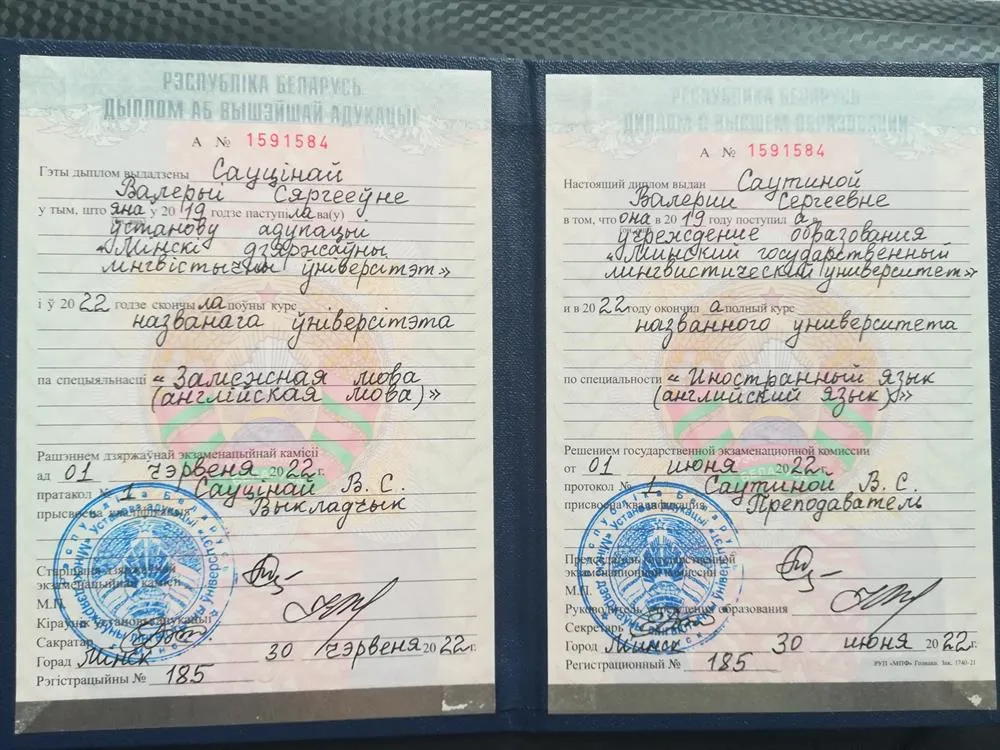 РЭСПУБЛІКА БЕЛАРУСЬ
ДЫПЛОМ АБ ВЫШЭЙШАЙ АДУКАЦЫІ
А № 1591584
Гэты дыплом выдадзены Сауцінай
Валерыі Сяргееўне
у тым, што яна у 2019 годзе паступіла ва(у)
ўстанову адукацыі
«Мінскі дзяржаўны
лінгвістычны ўніверсітэт»
і ў 2022 годзе скончыла поўны курс
названага ўніверсітэта
па спецыяльнасці «Замежная мова
(англійская мова)»
Рашэннем дзяржаўнай экзаменацыйнай камісіі
ад 01 чэрвеня 2022 г.
пратакол № 1 Сауцінай В. С.
прысвоена кваліфікацыя Выкладчык
Старшыня дзяржаўнай
экзаменацыйнай камісіі
М.П.
Кіраўнік установы адукацыі
Сакратар
Горад Минск 30 чэрвеня 2022 г.
Рэгістрацыйны № 185
РЕСПУБЛИКА БЕЛАРУСЬ
ДИПЛОМ О ВЫСШЕМ ОБРАЗОВАНИИ
А № 1591584
Настоящий диплом выдан Саутиной
Валерии Сергеевне
в том, что она в 2019 году поступил а
учреждение образования
«Минский государственный
лингвистический университет»
и в 2022 году окончил а полный курс
названного университета
по специальности «Иностранный язык
(английский язык)»
Решением государственной экзаменационной комиссии
от 01 июня 2022 г.
протокол № 1 Саутиной В. С.
присвоена квалификация Преподаватель
Председатель государственной
экзаменационной комиссии
М.П.
Руководитель учреждения образования
Секретарь
Город Минск 30 июня 2022 г.
Регистрационный № 185
РУП «МПФ» Гознака. Зак. 1740-21